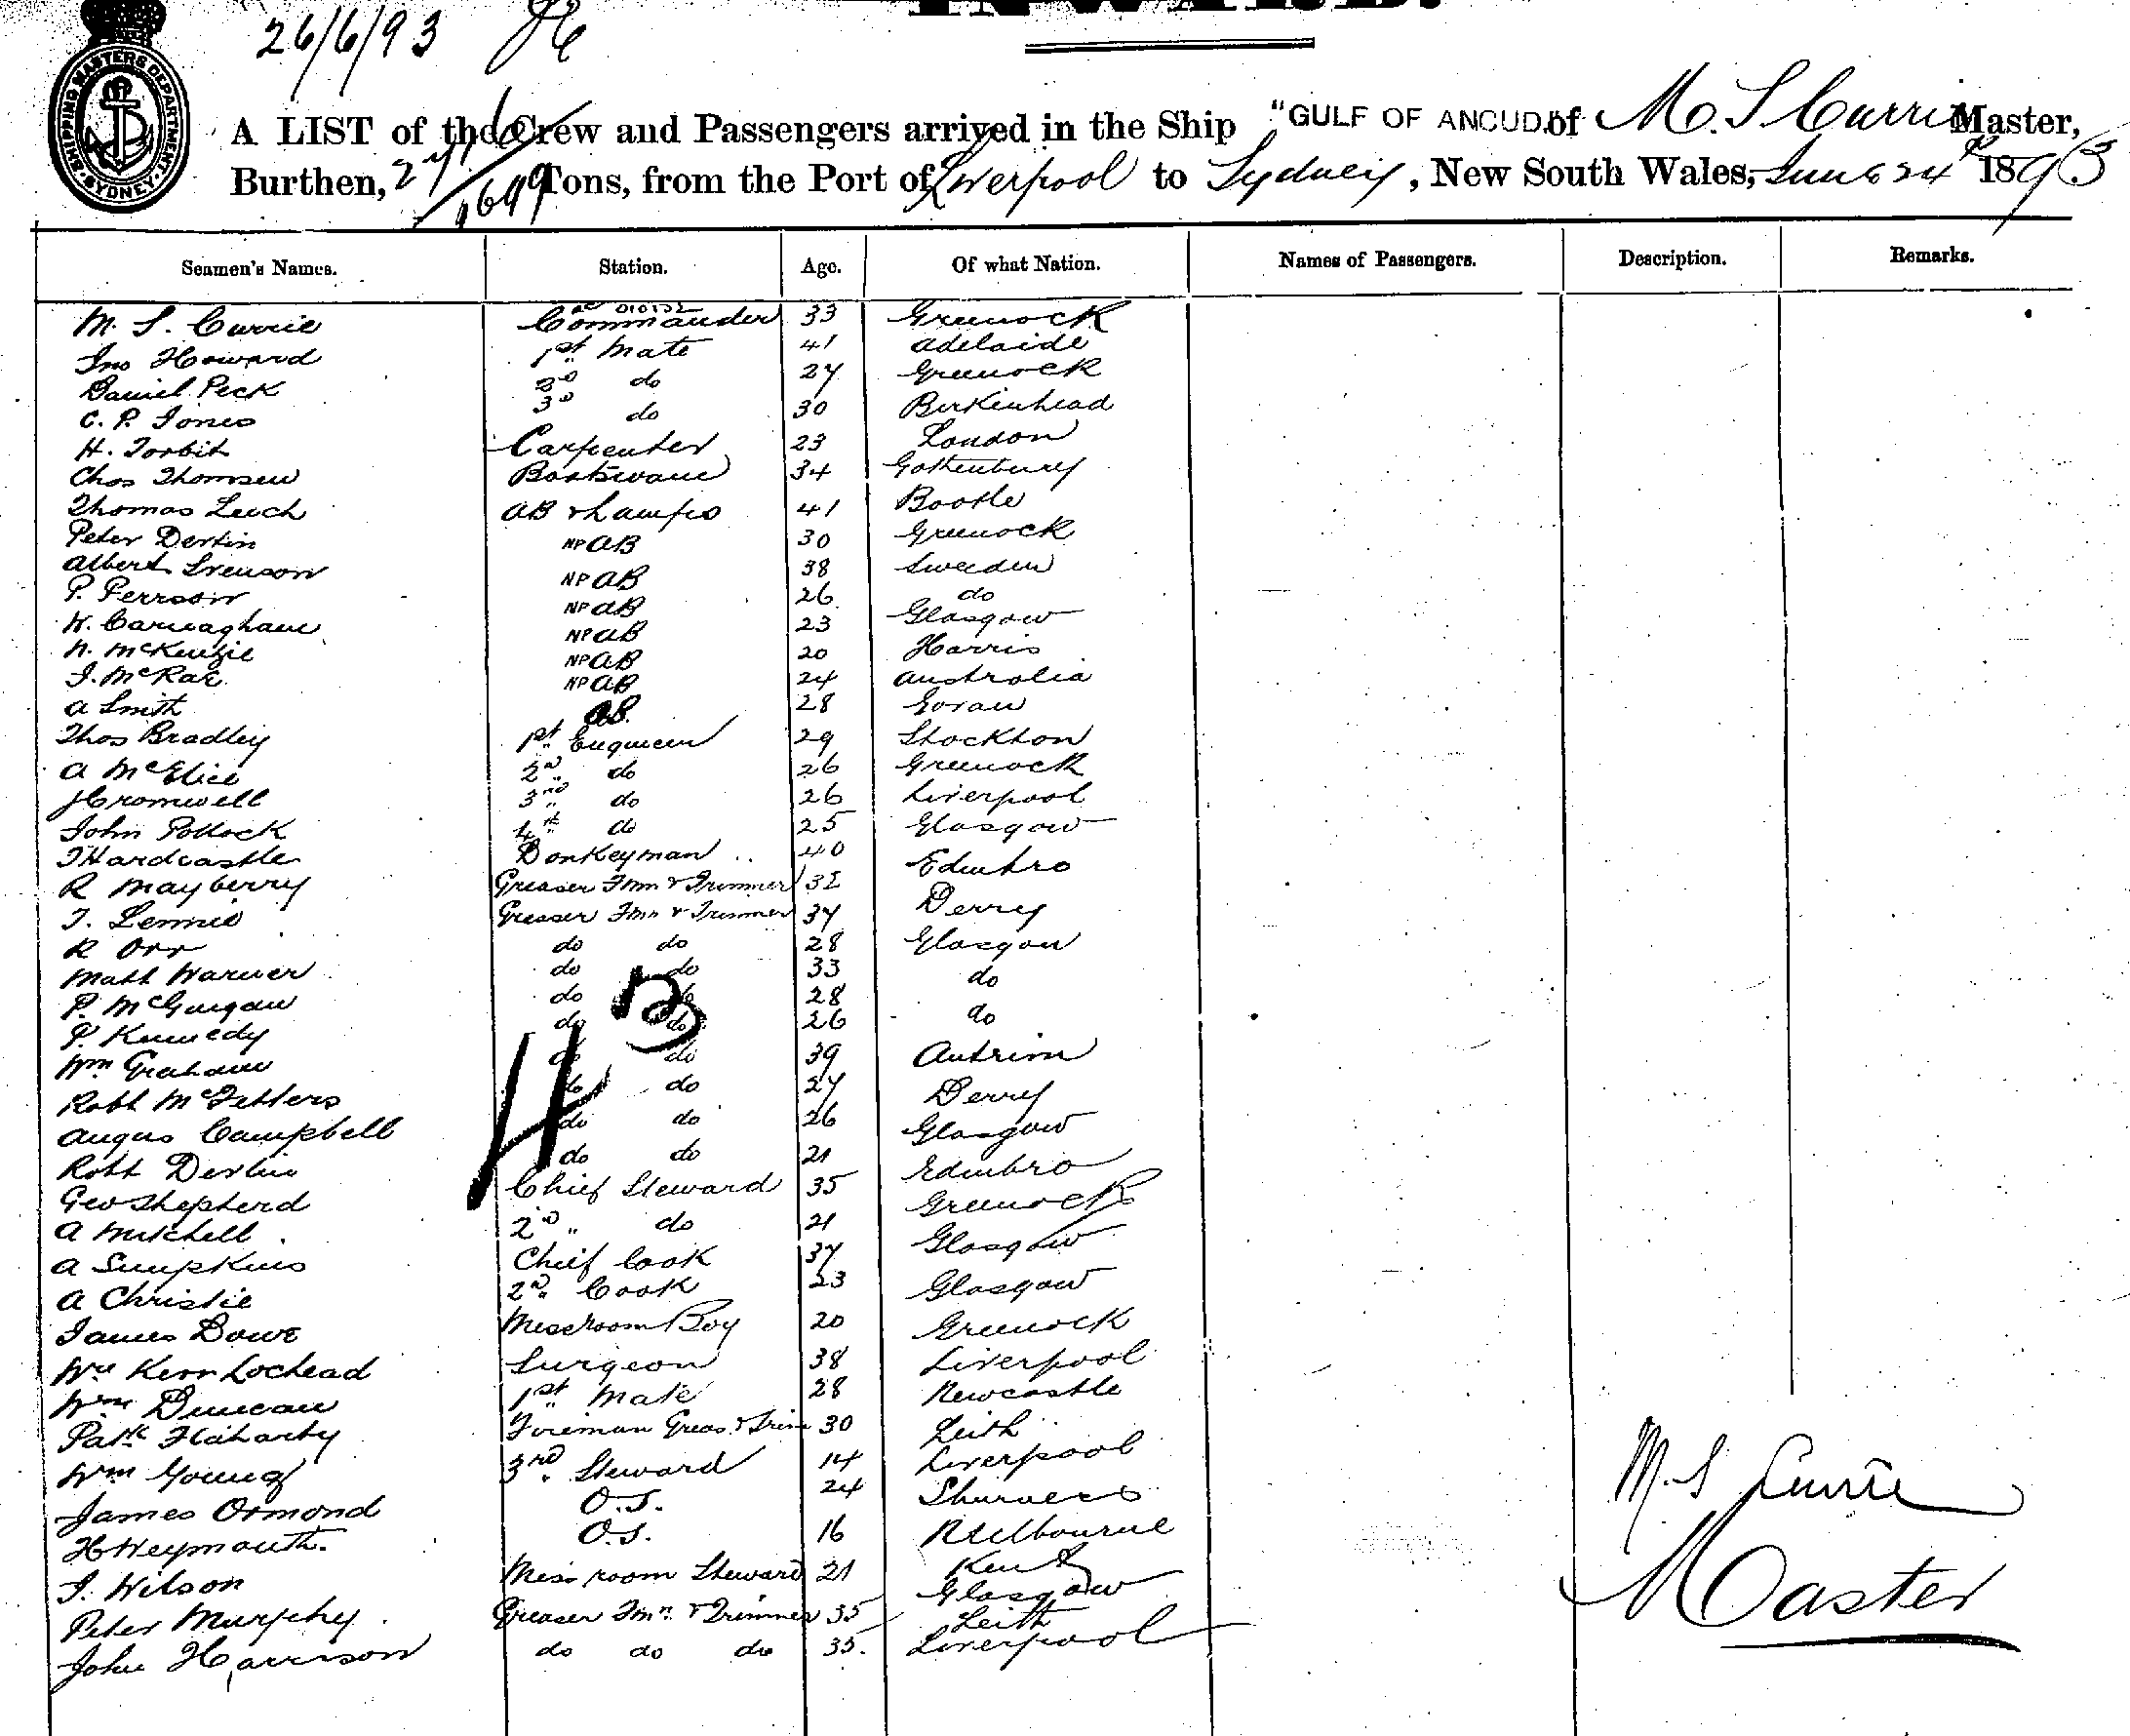 26/6/93
SHIPPING MASTERS DEPARTMENT SYDNEY
A LIST of the Crew and Passengers arrived in the Ship "GULF OF ANCUD" of M. S Currie Master,
Burthen, Tons, from the Port of Liverpool to Sydney, New South Wales, June 24th 1893
Seamen's Names. Station. Age. Of what Nation. Names of Passengers. Description. Remarks.
M. S. Currie Commander 33 Greenock
Jno Howard 1st Mate 41 Adelaide
Daniel Peck 2nd do 27 Greenock
C. P. Jones 3rd do 30 Birkenhead
H. Torbit Carpenter 23 London
Chas Thomsen Boatswain 34 Gothenburg
Thomas Leech AB & Lamps 41 Bootle
Peter Devlin NP AB 30 Greenock
Albert Svenson NP AB 38 Sweeden
P. Persson NP AB 26 do
W. Carnaghan NP AB 23 Glasgow
N. McKenzie NP AB 20 Harris
J. McRae NP AB 24 Australia
A Smith AB. 28 Govan
Thos Bradley 1st Engineer 29 Stockton
A McElice 2nd do 26 Greenock
J Cromwell 3rd do 26 Liverpool
John Pollock 4th do 25 Glasgow
J Hardcastle Donkeyman 40 Edinbro
R Mayberry Greaser Fmn & Trimmer 32
T. Lennie Greaser Fmn & Trimmer 37 Derry
R Orr do do 28 Glasgow
Matt Warner do do 33 do
P. McGuigan do do 28
P. Kennedy do do 26 do
Wm Graham do do 39 Antrim
Robt McFetters do do 27 Derry
Angus Campbell do do 26 Glasgow
Robt Devlin do do 21 Edinbro
Geo Shepherd Chief Steward 35 Greenock
A Mitchell 2nd do 21 Glasgow
A Simpkins Chief Cook 37
A Christie 2nd Cook 23 Glasgow
James Dowe Messroom Boy 20 Greenock
Wm Kerr Lochead Surgeon 38 Liverpool
Wm Duncan 1st Mate 28 Newcastle
Patk Flaharty Fireman Greas. & Trim 30 Leith
Wm Young 3rd Steward 14 Liverpool
James Ormond O.S. 24
H Weymouth. O.S. 16 Melbourne
J. Wilson Mess room Steward 21 Kent
Glasgow
Peter Murphy Greaser Fmn & Trimmer 35 Leith
John Harrison do do do 35. Liverpool
M. S Currie
Master